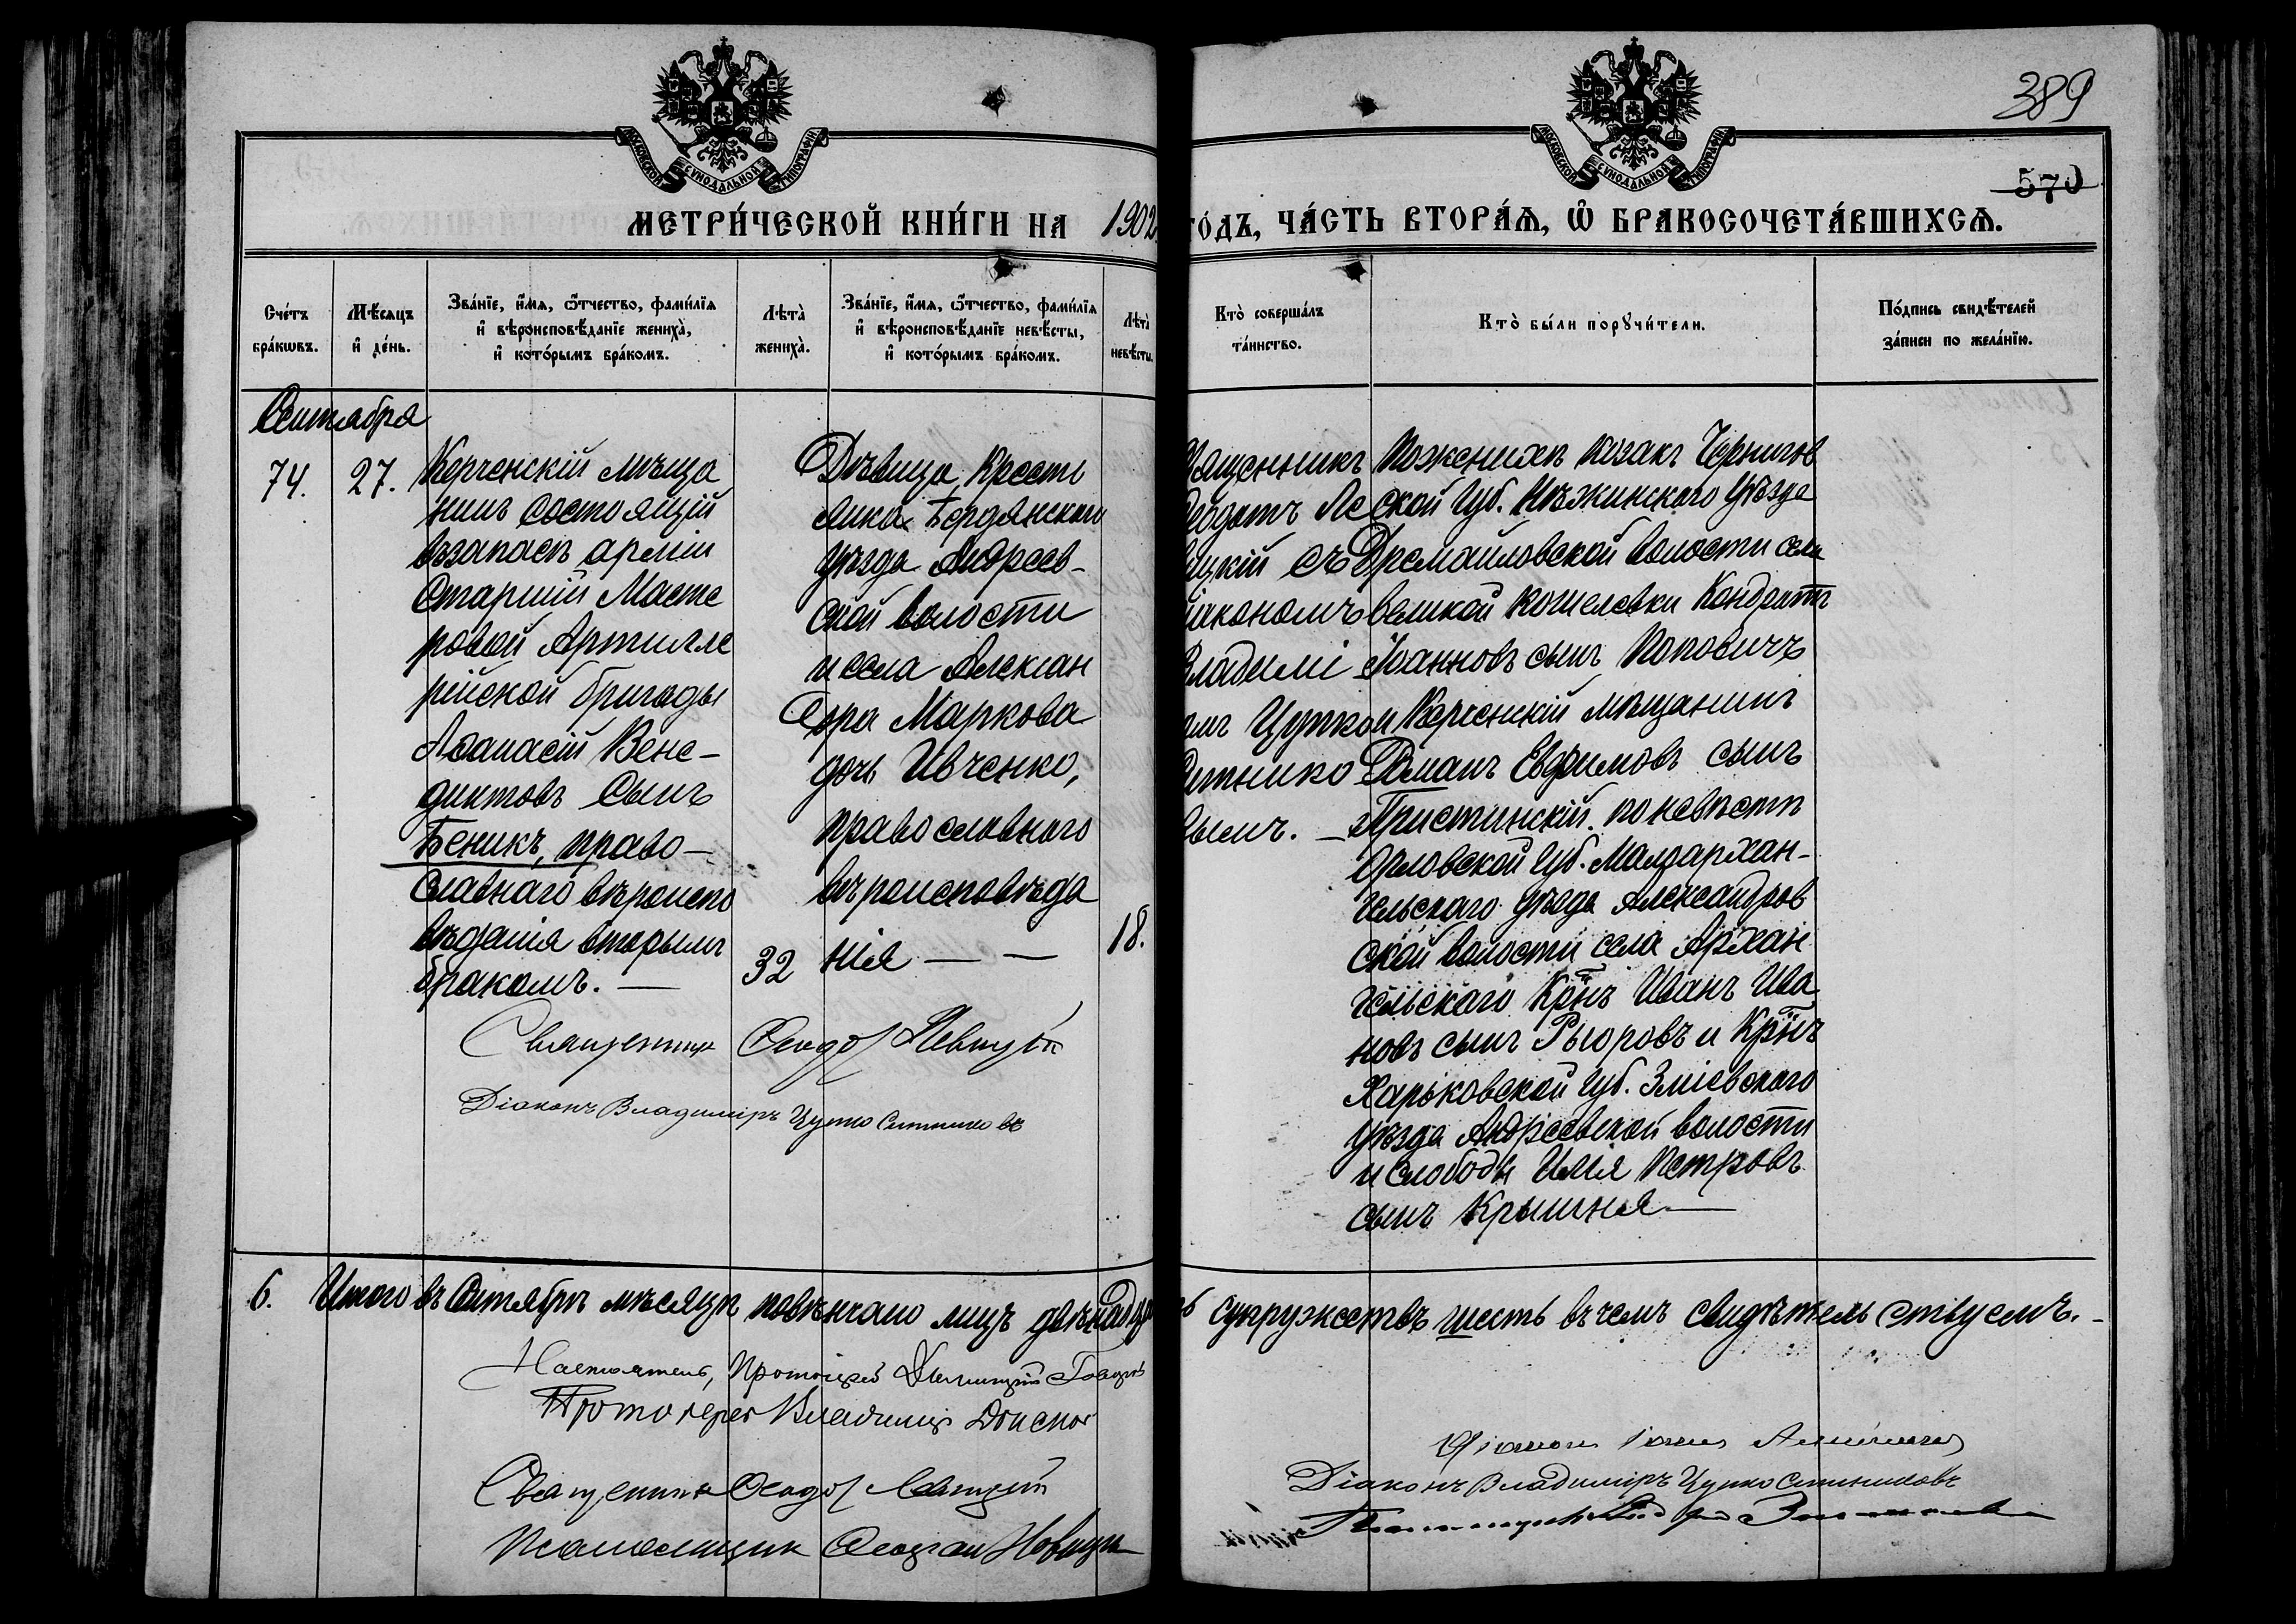 389
570
МОСКОВСКОЙ СѴНОДАЛЬНОЙ ТИПОГРАФІИ
МОСКОВСКОЙ СѴНОДАЛЬНОЙ ТИПОГРАФІИ
МЕТРИ́ЧЕСКОЙ КНИ́ГИ НА 1902
ГО́ДЪ, ЧА́СТЬ ВТОРА́Ѧ, Ѡ҆ БРАКОСОЧЕТА́ВШИХСѦ.
Сче́тъ бра́кѡвъ.
Мѣ́сѧцъ и҆ де́нь.
Зва́нїе, и҆́мѧ, ѻ҆́тчество, фами́лїѧ
и҆ вѣроисповѣ́данїе жениха̀,
и҆ кото́рымъ бра́комъ.
Лѣта̀ жениха̀.
Зва́нїе, и҆́мѧ, ѻ҆́тчество, фами́лїѧ
и҆ вѣроисповѣ́данїе невѣ́сты,
и҆ кото́рымъ бра́комъ.
Лѣта̀ невѣ́сты.
Кто̀ соверша́лъ
та́инство.
Кто̀ бы́ли порꙋчи́тели.
По́дпись свидѣ́телей
за́писи по жела́нїю.
Сентября
74.
27.
Керченскій мѣща
нинъ состоящій
въ запасѣ арміи
Старшій Масте
ровой Артилле
рійской бригады
Аѳанасій Вене-
диктовъ Сынъ
Беникъ, право-
славнаго вѣроиспо
вѣданія вторымъ
бракомъ. —
32
Дѣвица, Кресть
янка Бердянскаго
уѣзда Андреев-
ской волости
и села Алексан
дра Маркова
дочь Ивченко,
православнаго
вѣроисповѣда
нія — —
18.
вященникъ
Ле
цкій съ
іакономъ
Владимі
омъ Цупко
итнико
вымъ. —
По женихѣ Козакъ Чернигов
ской Губ. Нѣжинскаго Уѣзда
Дремайловской волости села
Великой Кошелевки Кондратъ
Іоанновъ сынъ Поповичъ
и Керченскій мѣщанинъ
Романъ Евфимовъ сынъ
Пристинскій. по невѣстѣ
Орловской Губ. Малоархан-
гельскаго уѣзда Александров
ской волости села Архан
гельскаго Крнъ Иванъ Ива
новъ сынъ Рыоровъ и Крнъ
Харьковской Губ. Зміевскаго
уѣзда Андреевской волости
и слободы Илія Петровъ
сынъ Крышня —
Священникъ Ѳеодот Левицкій
Діаконъ Владиміръ Цупко Ситниковъ
6. Итого въ Сентябрѣ мѣсяцѣ повѣнчано лицъ двѣнадца
ть супружествъ шесть въ чемъ свидѣтельствуемъ. —
Настоятель, Протоіерей
Протоіерей Владимір
Священникъ Ѳеодот Левицкій
Псаломщикъ
Діаконъ
Діаконъ Владиміръ Цупко Ситниковъ